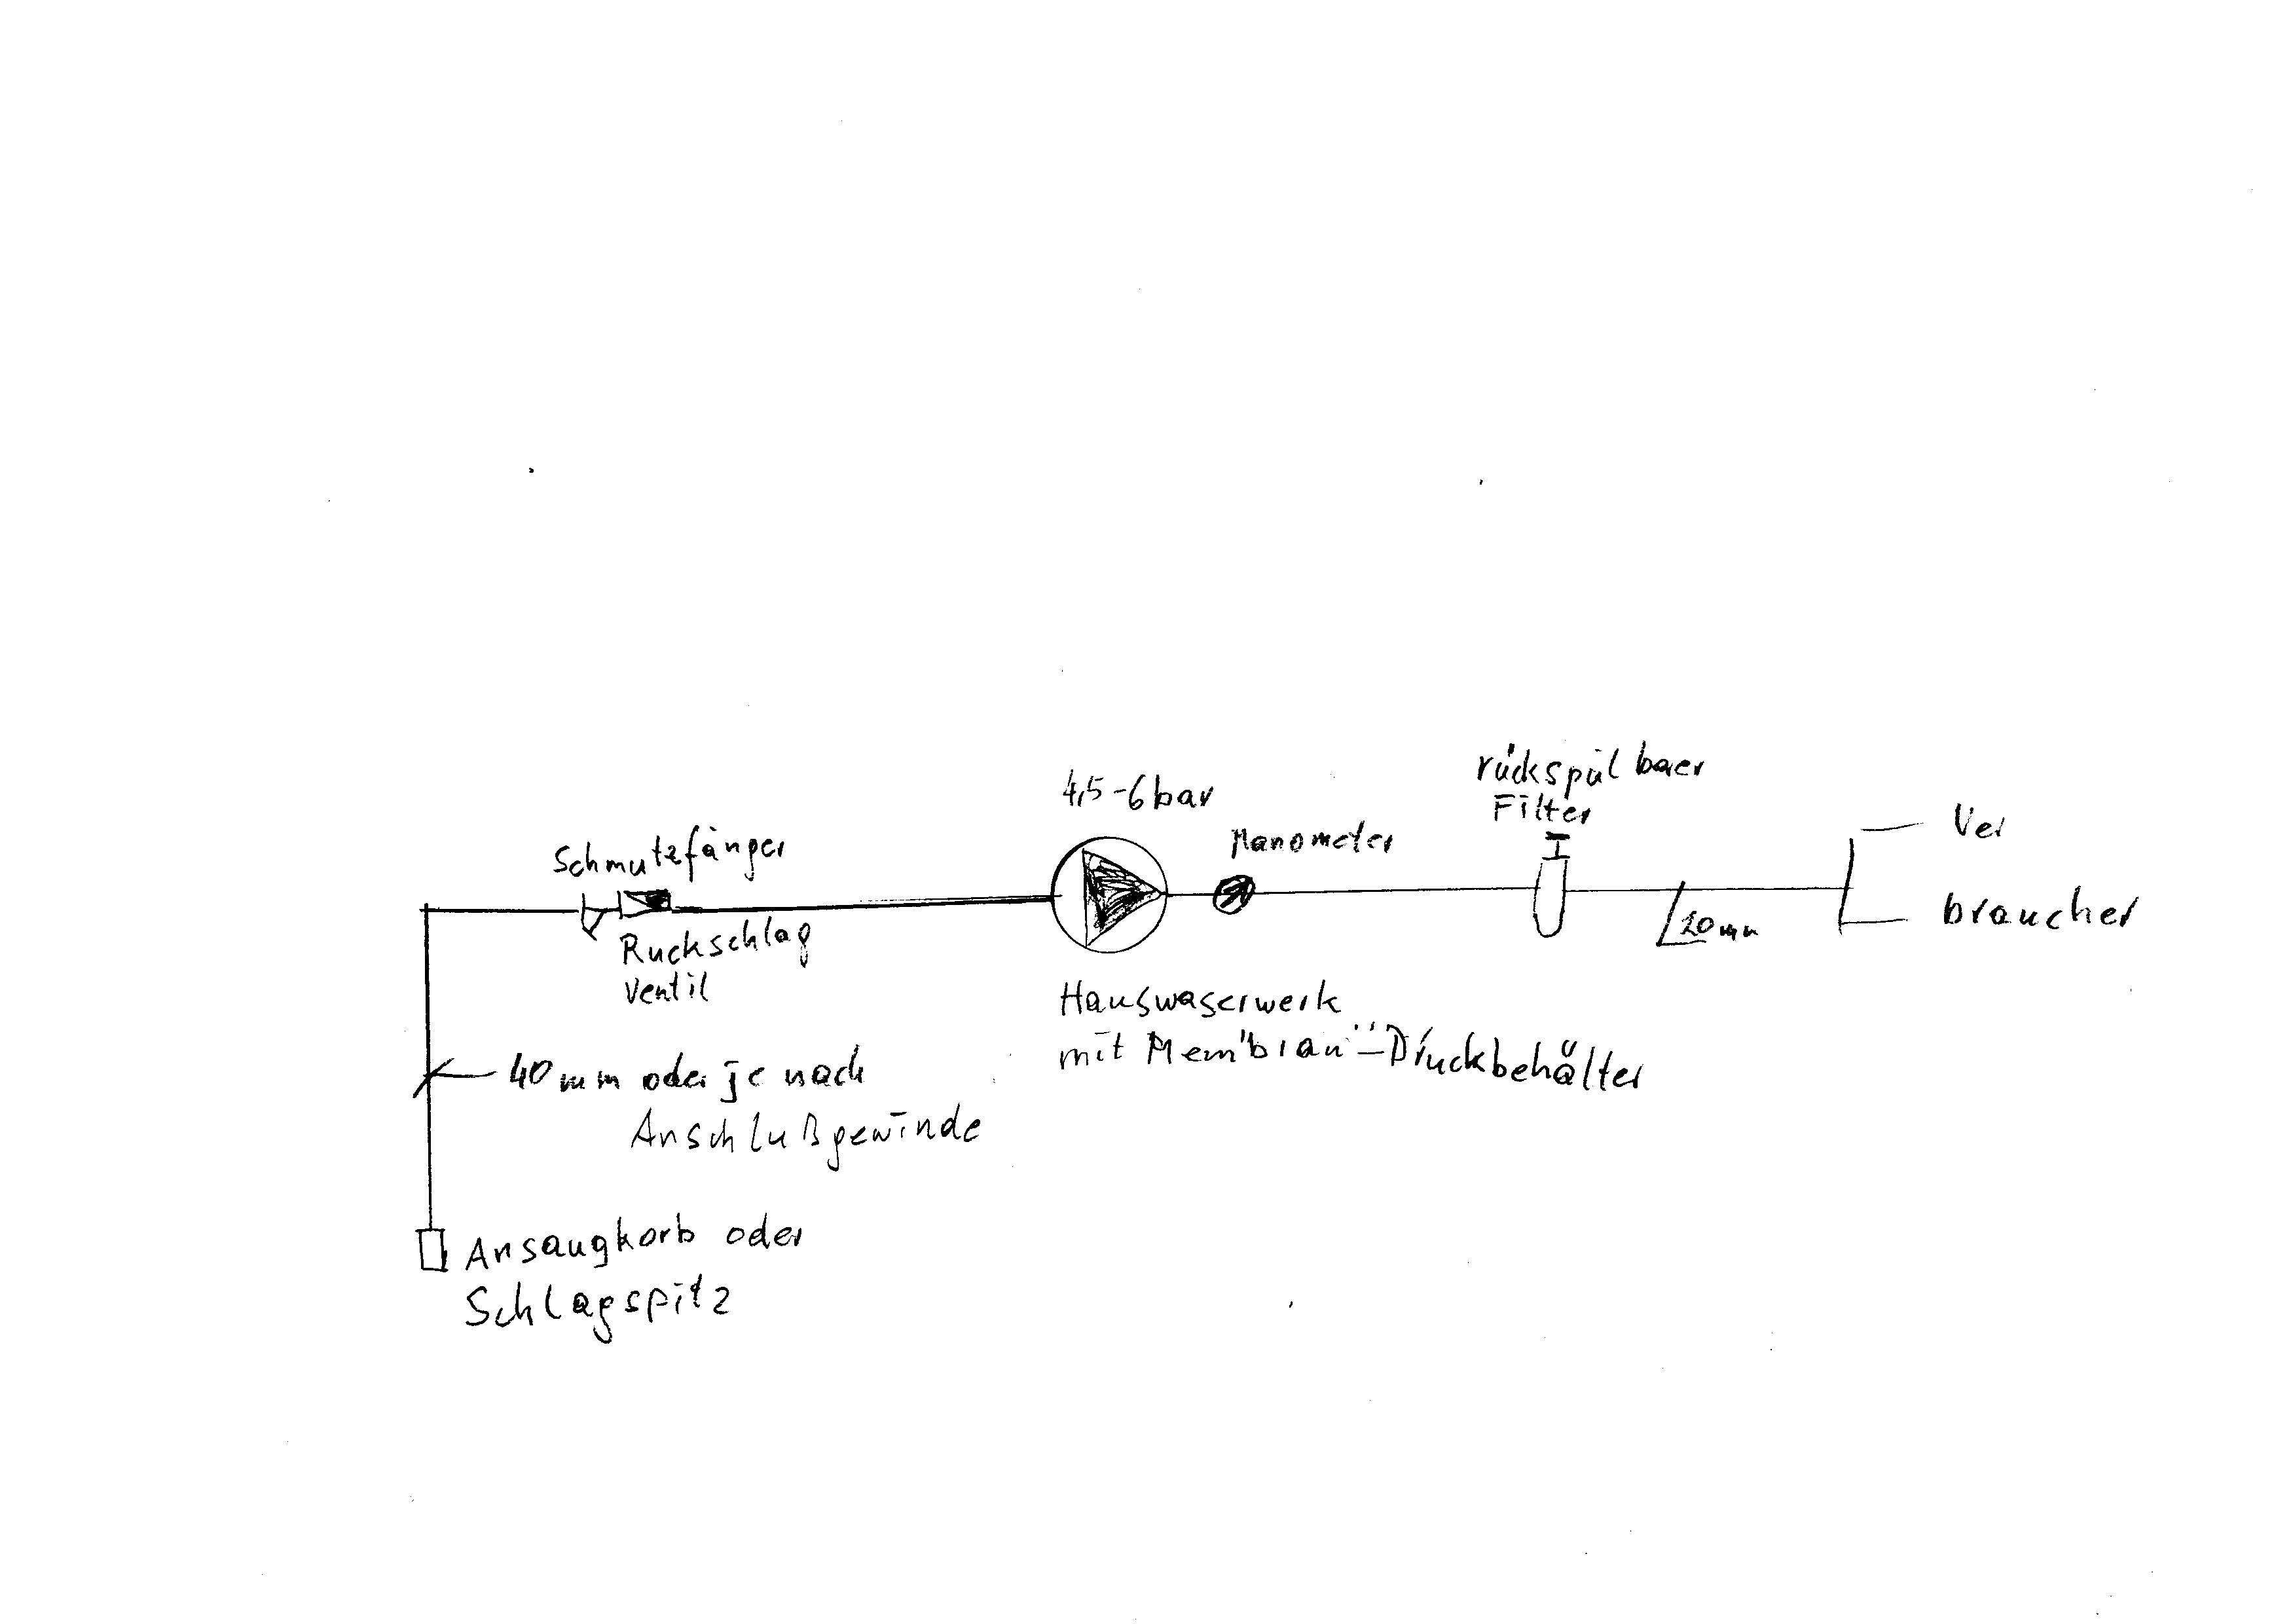 4,5-6bar
rückspülbarer
Filter
Manometer
Schmutzfänger
Ver
braucher
20mm
Rückschlag
Ventil
Hauswaserwerk
mit Membran-Druckbehälter
40mm oder je nach
Anschlußgewinde
Ansaugkorb oder
Schlagspitz